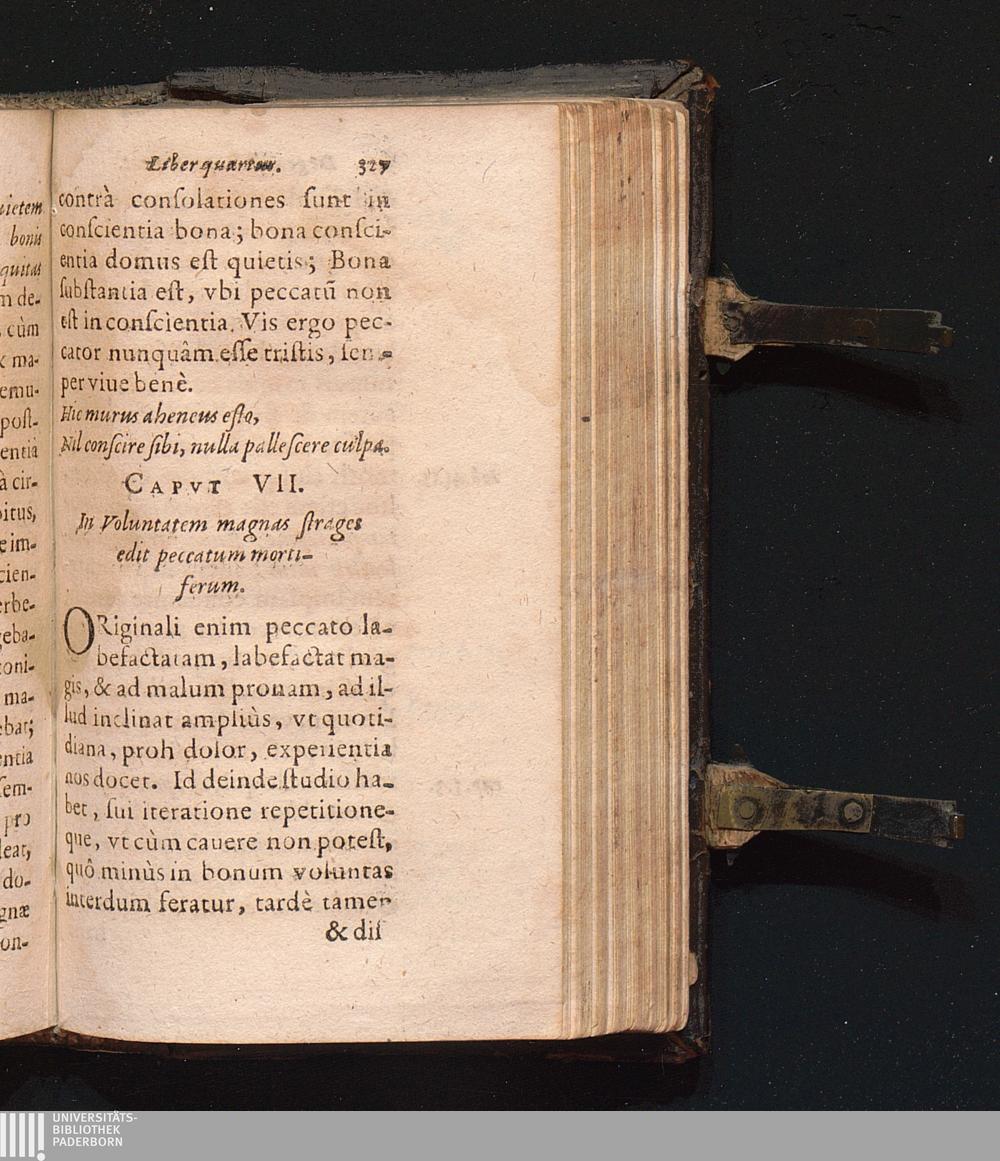 uietem
bonis
quitas
m de-
cùm
ma-
emu-
post-
entiâ
à cir-
bitus,
e im-
cien-
erbe-
geba-
toni-
ma-
ebat;
entia
sem-
pro
leat,
do-
gnæ
on-
Liber quartus. 327
contrà conſolationes ſunt in
conſcientia bona; bona conſci-
entia domus eſt quietis; Bona
ſubſtantia eſt, vbi peccatū non
eſt in conſcientia. Vis ergo pec-
cator nunquâm eſſe triſtis, ſem-
per viue benè.
Hic murus aheneus eſto,
Nil conſcire ſibi, nulla palleſcere culpa.
CAPVT VII.
In Voluntatem magnas ſtrages
edit peccatum morti-
ferum.
ORiginali enim peccato la-
befactatam, labefactat ma-
gis, & ad malum pronam, ad il-
lud inclinat ampliùs, vt quoti-
diana, proh dolor, experientia
nos docet. Id deinde ſtudio ha-
bet, ſui iteratione repetitione-
que, vt cùm cauere non poteſt,
quô minùs in bonum voluntas
interdum feratur, tardè tamen
& diſ
UNIVERSITÄTS-
BIBLIOTHEK
PADERBORN